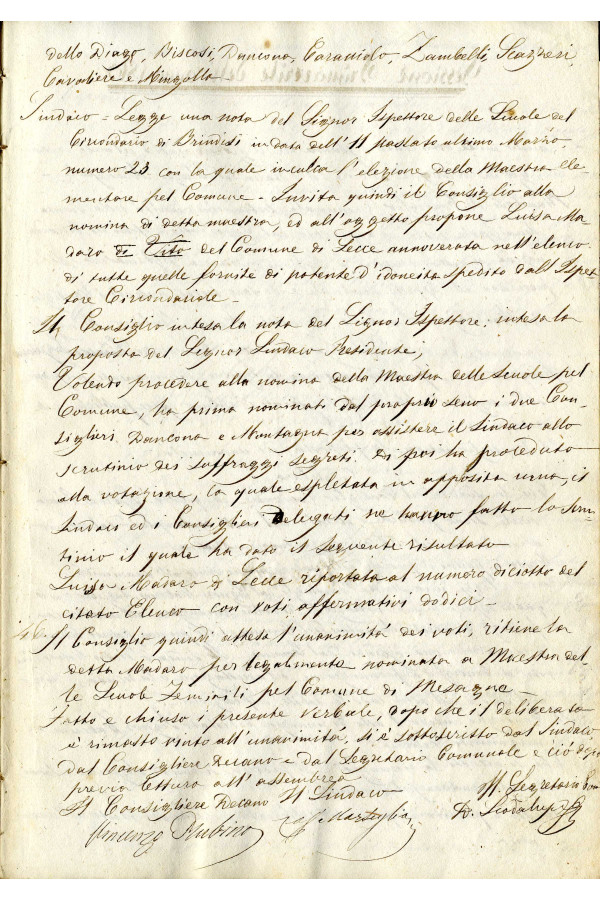 dello Diago, Biscosi, Dancona, Caraciolo, Zambelli, Scazzeri
Cavaliere e
Sindaco = Legge una nota del Signor Ispettore delle Scuole del
Circondario di Brindisi in data dell'11 passato ultimo Marzo,
numero 23 con la quale inculca l'elezione della Maestra Ele
mentare pel Comune - Invita quindi il Consiglio alla
nomina di detta maestra, ed all'oggetto propone Luisa Ma
daro di Vito del Comune di Lecce annoverata nell'elenco
di tutte quelle fornite di patente d'idoneita spedito dall'Ispet
tore Circondariale -
Il Consiglio intesa la nota del Signor Ispettore; intesa la
proposta del Signor Sindaco Presidente;
Volendo procedere alla nomina della Maestra delle Scuole pel
Comune, ha prima nominati dal proprio seno i due Con
siglieri Dancona e Montagna per assistere il Sindaco allo
scrutinio dei suffraggi segreti. Di poi ha proceduto
alla votazione, la quale espletata in apposita urna, il
Sindaco ed i Consiglieri Delegati ne hanno fatto lo scru
tinio il quale ha dato il seguente risultato
Luisa Madaro di Lecce riportata al numero diciotto del
citato Elenco con voti affermativi dodici -
Il Consiglio quindi attesa l'unanimità dei voti, ritiene la
detta Madaro per legalmente nominata a Maestra del
le Scuole Feminili pel Comune di Mesagne -
Fatto e chiuso il presente verbale, dopo che il deliberato
è rimasto vinto all'unanimità, si è sottoscritto dal Sindaco
dal Consigliere Decano e dal Segretario Comunale e ciò dopo
previa lettura all'assemblea
Il Consigliere Decano Il Sindaco Il Segretario Com
Vincenzo Rubino